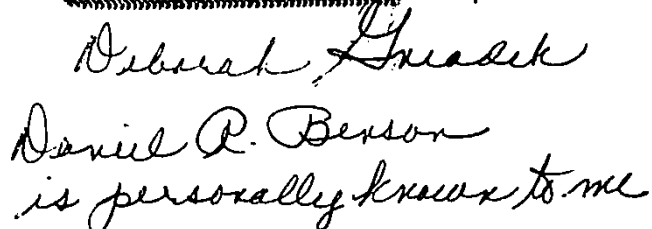 Deborah Gneadek
Daniel R. Benson
is personally known to me